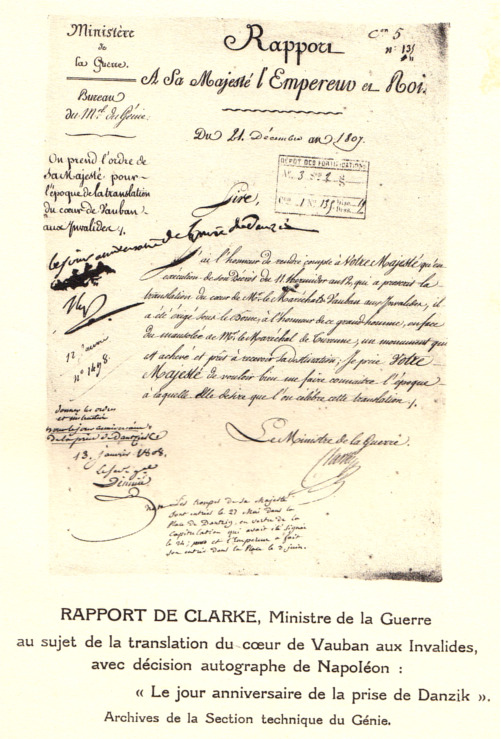 Ministère
de
la Guerre.
Bureau
du M.el du Génie.
Con 5
n° 135
Rapport
A Sa Majesté l'Empereur et Roi.
Du 21. Décembre an 1807.
On prend l'ordre de
Sa Majesté pour
l'époque de la translation
du cœur de Vauban
aux Invalides.
DÉPÔT DES FORTIFICATIONS
Sire,
le jour anniversaire de la prise de Danzic
J'ai l'honneur de rendre compte à Votre Majesté qu'en
exécution de son Décret du 11 thermidor an 12, qui a prescrit la
translation du cœur de Mr. le Maréchal de Vauban aux Invalides, il
a été érigé sous le Dôme, à l'honneur de ce grand homme, en face
du mausolée de Mr. le Maréchal de Turenne, un monument qui
est achevé et prêt à recevoir sa destination; Je prie Votre
Majesté de vouloir bien me faire connaitre l'époque
à laquelle elle desire que l'on célèbre cette translation.
12 janvier
n° 1498.
Le Ministre de la Guerre.
Clarke
donner les ordres
et instruction
pour le jour anniversaire
de la prise de Dantzick
13. janvier 1808.
Le Ser. gal
Dejean
Les troupes de Sa Majesté
sont entrées le 27 Mai dans la
Place de Dantzig, en vertu de la
Capitulation qui avait été signée
le 24; et l'Empereur a fait
son entrée dans la Place le 2 juin.
RAPPORT DE CLARKE, Ministre de la Guerre
au sujet de la translation du cœur de Vauban aux Invalides,
avec décision autographe de Napoléon :
« Le jour anniversaire de la prise de Danzik ».
Archives de la Section technique du Génie.